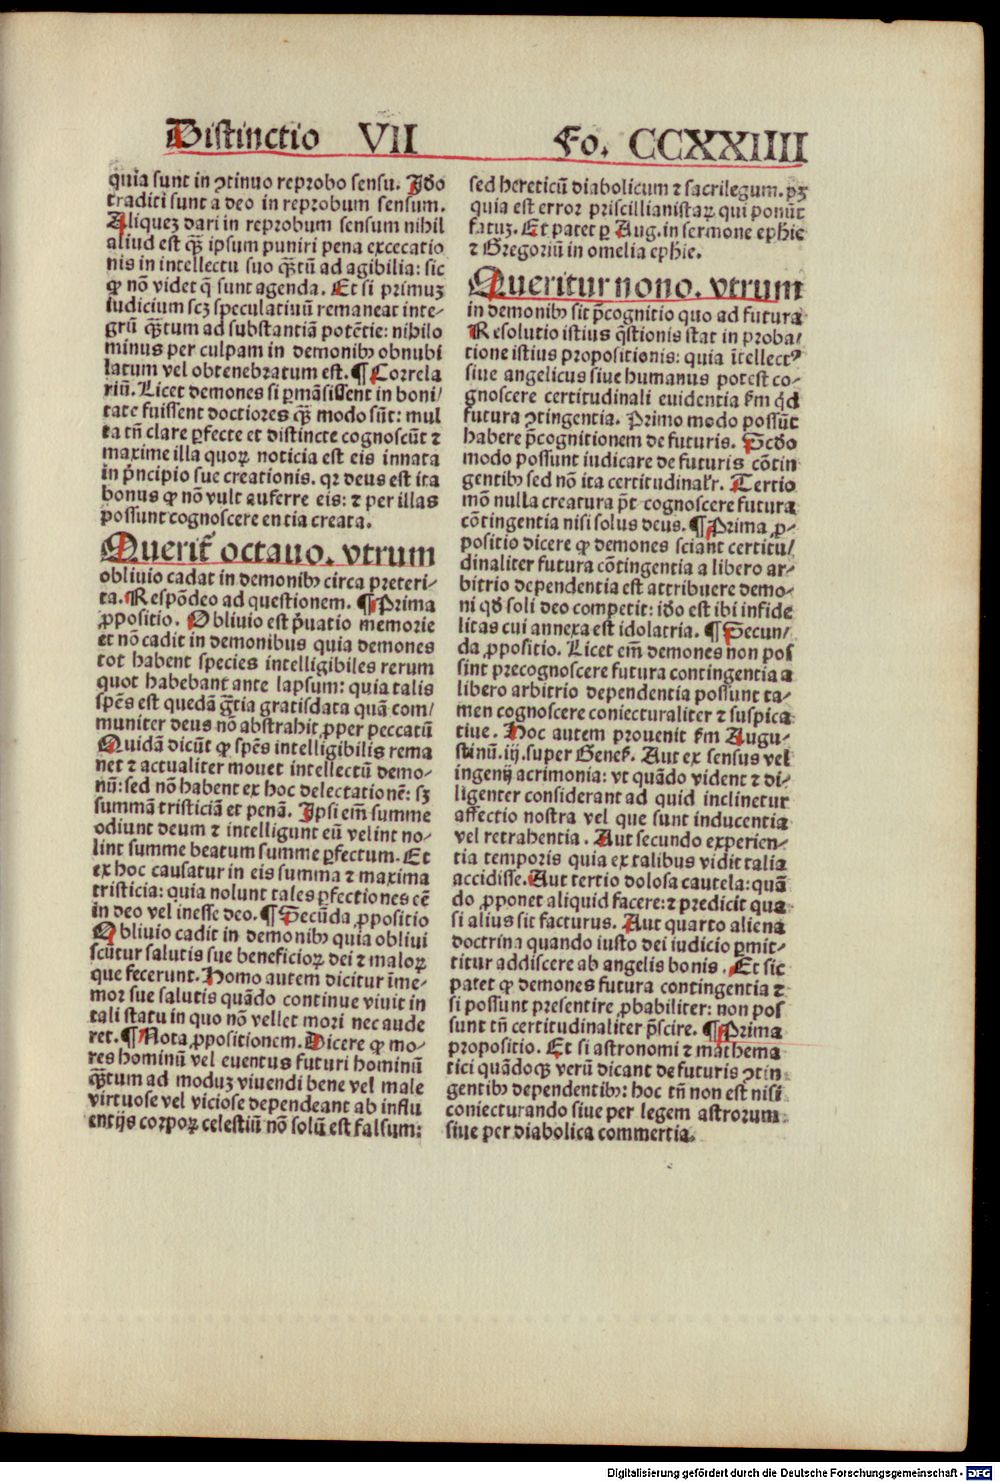 Distinctio VII Fo. CCXXIIII
quia sunt in ꝯtinuo reprobo sensu. Iđo
traditi sunt a deo in reprobum sensum.
Aliqueꝫ dari in reprobum sensum nihil
aliud est qȝ̃ ipsum puniri pena excecatio
nis in intellectu suo qȝ̃tũ ad agibilia: sic
ꝙ nõ videt q̃ sunt agenda. Et si primuꝫ
iudicium scꝫ speculatiuũ remaneat inte-
grũ qȝ̃tum ad substantiã potẽtie: nihilo
minus per culpam in demonibꝰ obnubi
latum vel obtenebratum est. ¶ Correla
riũ. Licet demones si ꝑmãsissent in boni/
tate fuissent doctiores qȝ̃ modo sũt: mul
ta tñ clare ꝑfecte et distincte cognoscũt ⁊
maxime illa quoꝝ noticia est eis innata
in p̃ncipio sue creationis. qꝛ deus est ita
bonus ꝙ nõ vult auferre eis: ⁊ per illas
possunt cognoscere entia creata.
Querit̃ octauo. vtrum
obliuio cadat in demonibꝰ circa preteri-
ta. Respõdeo ad questionem. ¶ Prima
ꝓpositio. Obliuio est p̃uatio memorie
et nõ cadit in demonibus quia demones
tot habent species intelligibiles rerum
quot habebant ante lapsum: quia talis
spẽs est quedã gr̃tia gratisdata quã com/
muniter deus nõ abstrahit ꝓpter peccatũ
Quidã dicũt ꝙ spẽs intelligibilis rema
net ⁊ actualiter mouet intellectũ demo-
nũ: sed nõ habent ex hoc delectationẽ: sꝫ
summã tristiciã et penã. Ipsi em̃ summe
odiunt deum ⁊ intelligunt eũ velint no-
lint summe beatum summe ꝑfectum. Et
ex hoc causatur in eis summa ⁊ maxima
tristicia: quia nolunt tales ꝑfectiones eẽ
in deo vel inesse deo. ¶ Secũda ꝓpositio
Obliuio cadit in demonibꝰ quia obliui
scũtur salutis sue beneficioꝝ dei ⁊ maloꝝ
que fecerunt. Homo autem dicitur ĩme-
mor sue salutis quãdo continue viuit in
tali statu in quo nõ vellet mori nec aude
ret. ¶ Nota ꝓpositionem. Dicere ꝙ mo-
res hominũ vel euentus futuri hominũ
qȝ̃tum ad moduꝫ viuendi bene vel male
virtuose vel viciose dependeant ab influ
entijs corpoꝝ celestiũ nõ solũ est falsum:
sed hereticũ diabolicum ⁊ sacrilegum. pꝫ
quia est error priscillianistaꝝ qui ponũt
fatuꝫ. Et patet ꝑ Aug. in sermone eph̃ie
⁊ Gregoriũ in omelia ephie.
Queritur nono. vtrum
in demonibꝰ sit p̃cognitio quo ad futura
Resolutio istius q̃stionis stat in proba/
tione istius propositionis: quia ĩtellectꝰ
siue angelicus siue humanus potest co-
gnoscere certitudinali euidentia fm̃ qđ
futura ꝯtingentia. Primo modo possũt
habere p̃cognitionem de futuris. Scđo
modo possunt iudicare de futuris cõtin
gentibꝰ sed nõ ita certitudinalr̃. Tertio
mõ nulla creatura pt̃ cognoscere futura
cõtingentia nisi solus deus. ¶ Prima ꝓ-
positio dicere ꝙ demones sciant certitu/
dinaliter futura cõtingentia a libero ar-
bitrio dependentia est attribuere demo-
ni qđ soli deo competit: iđo est ibi infide
litas cui annexa est idolatria. ¶ Secun/
da ꝓpositio. Licet em̃ demones non pos
sint precognoscere futura contingentia a
libero arbitrio dependentia possunt ta-
men cognoscere coniecturaliter ⁊ suspica
tiue. Hoc autem prouenit fm̃ Augu-
stinũ. iij. super Geneš. Aut ex sensus vel
ingenij acrimonia: vt quãdo vident ⁊ di-
ligenter considerant ad quid inclinetur
affectio nostra vel que sunt inducentia
vel retrahentia. Aut secundo experien-
tia temporis quia ex talibus vidit talia
accidisse. Aut tertio dolosa cautela: quã
do ꝓponet aliquid facere: ⁊ predicit qua
si alius sit facturus. Aut quarto aliena
doctrina quando iusto dei iudicio ꝑmit-
titur addiscere ab angelis bonis. Et sic
patet ꝙ demones futura contingentia ⁊
si possunt presentire ꝓbabiliter: non pos
sunt tñ certitudinaliter p̃scire. ¶ Prima
propositio. Et si astronomi ⁊ mathema
tici quãdoqȝ verũ dicant de futuris ꝯtin
gentibꝰ dependentibꝰ: hoc tñ non est nisi
coniecturando siue per legem astrorum
siue per diabolica commertia.
Digitalisierung gefördert durch die Deutsche Forschungsgemeinschaft - DFG